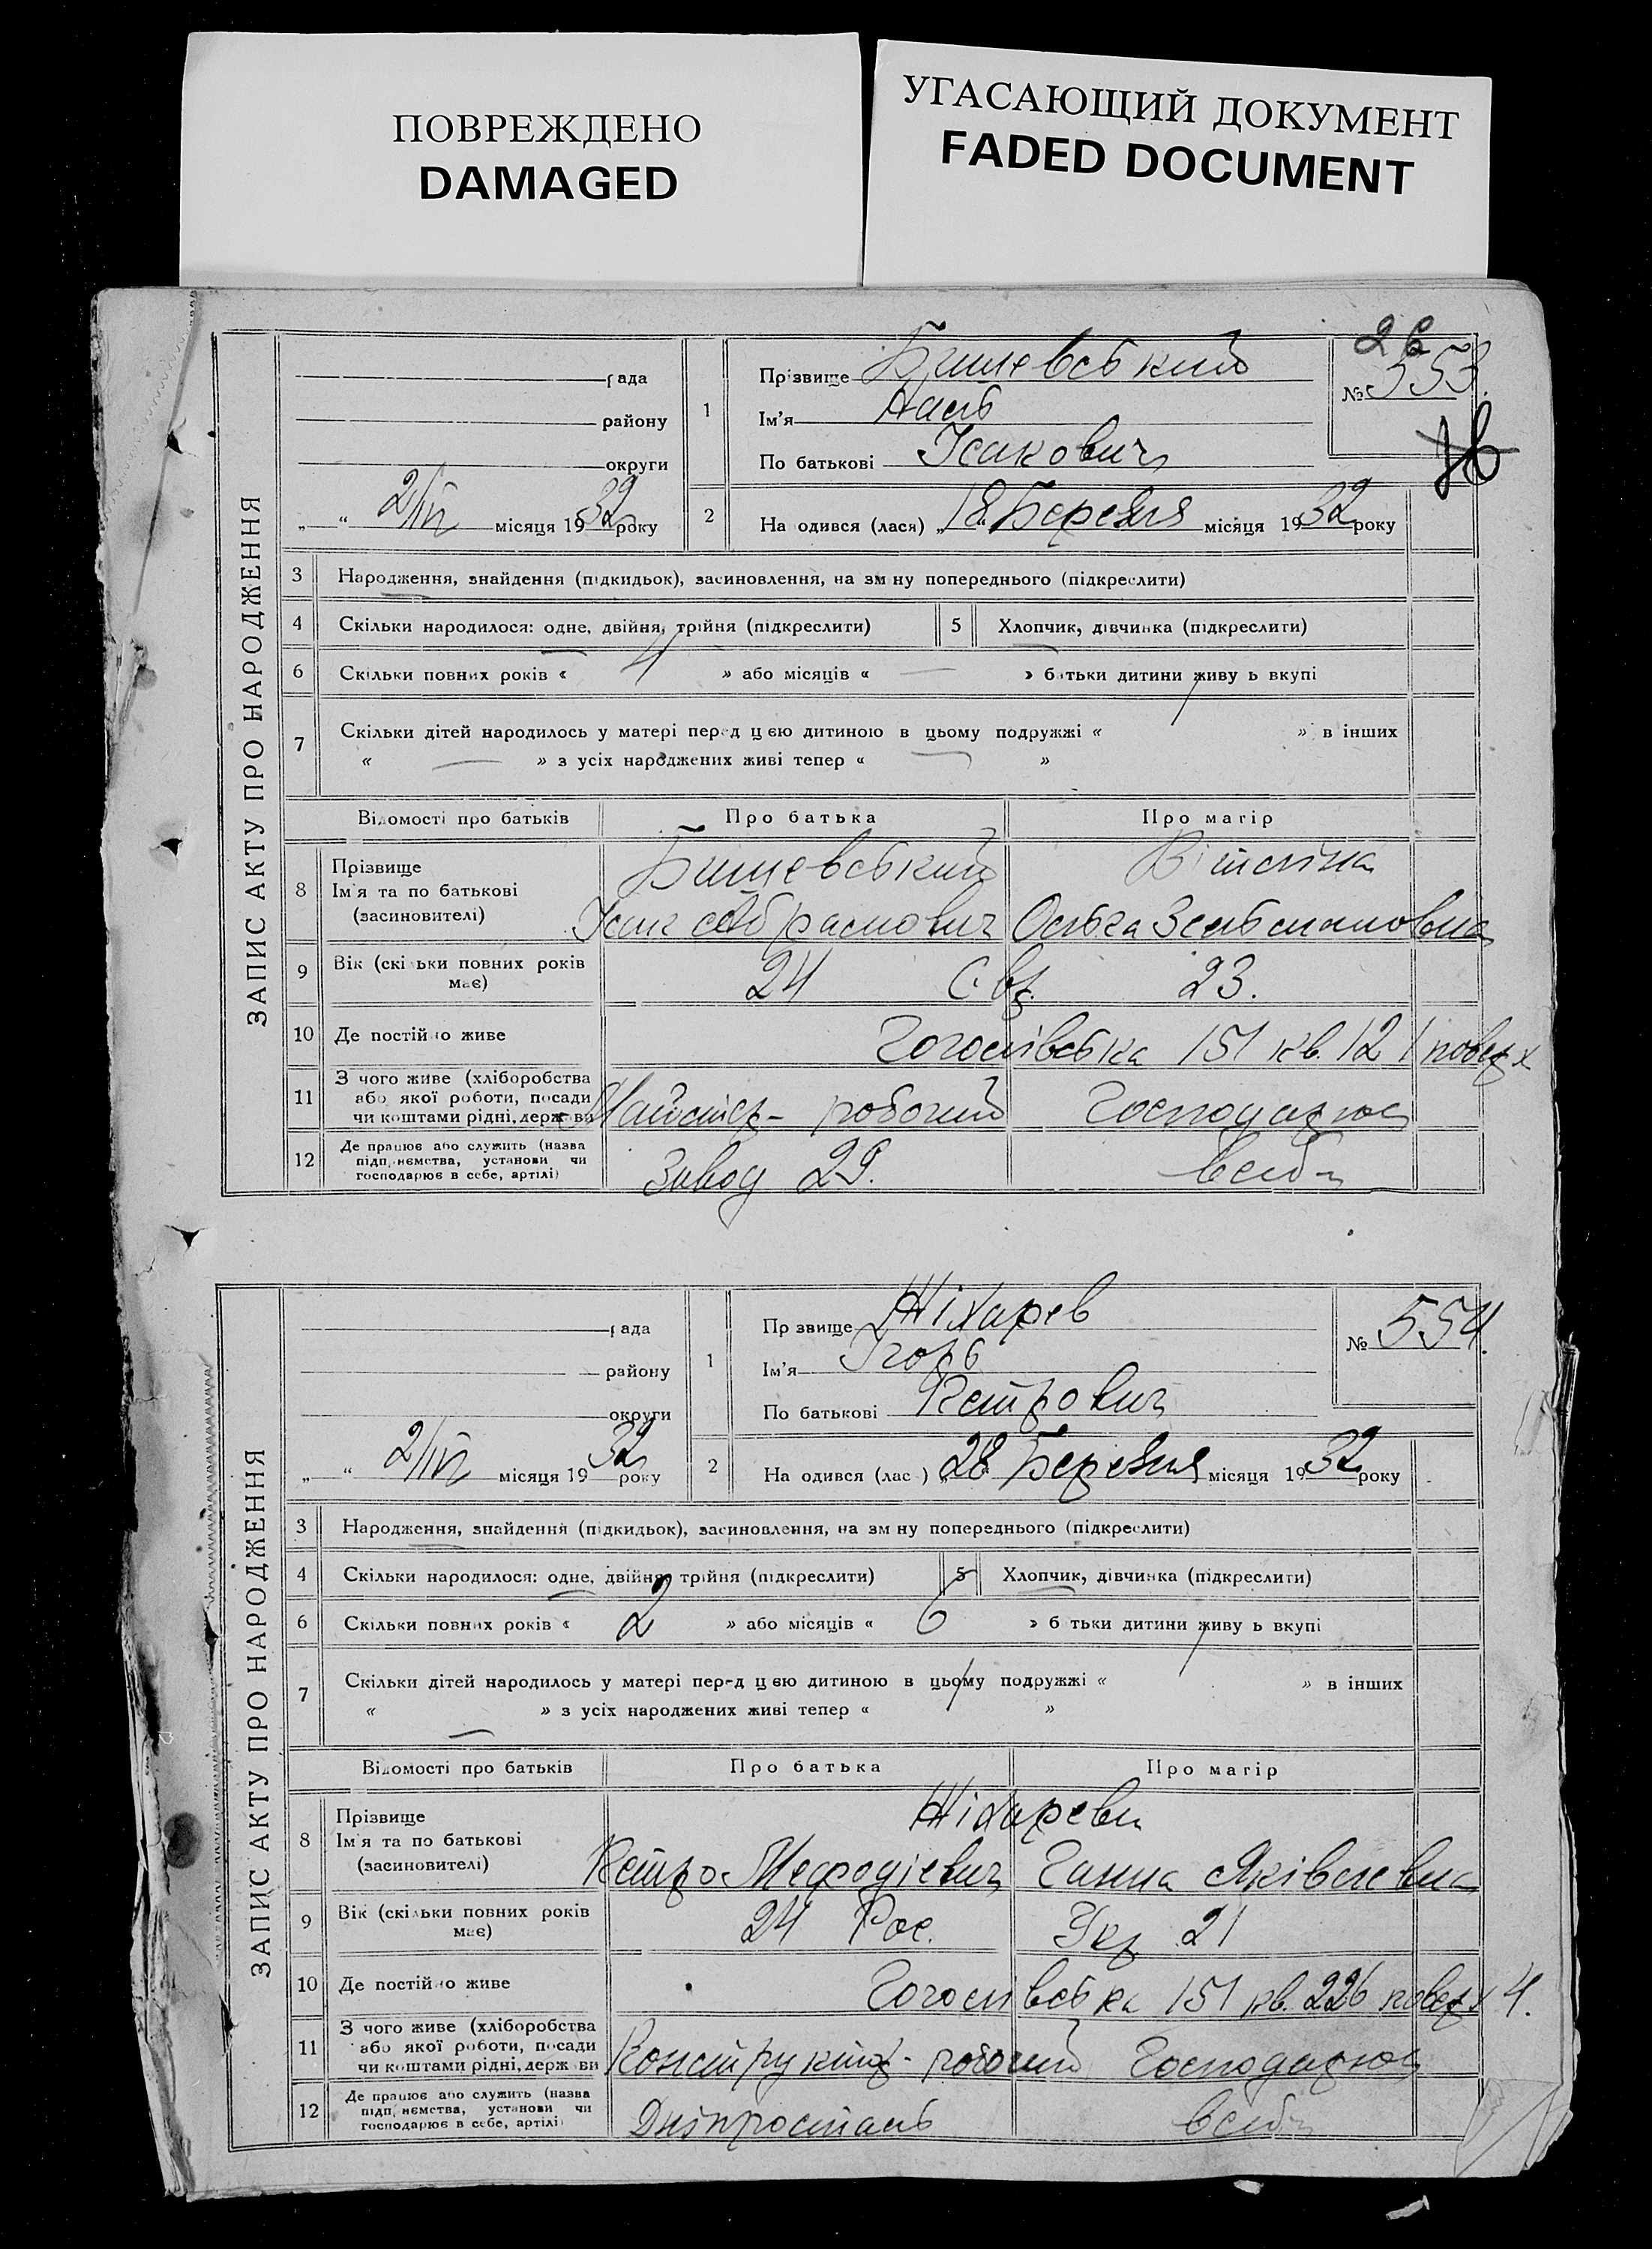 ПОВРЕЖДЕНО
DAMAGED
УГАСАЮЩИЙ ДОКУМЕНТ
FADED DOCUMENT
26
ЗАПИС АКТУ ПРО НАРОДЖЕННЯ
рада
району
округи
„ “ 2/IV місяця 1932 року
1
Прізвище
Ім'я
По батькові Ісакович
№ 553.
2 На одився (лася) „18 Березня місяця 1932 року
3 Народження, знайдення (підкидьок), засиновлення, на зм ну попереднього (підкреслити)
4 Скільки народилося: одне, двійня, трійня (підкреслити) 5 Хлопчик, дівчинка (підкреслити)
6 Скільки повних років « 4 » або місяців « — » батьки дитини живу ь вкупі
7 Скільки дітей народилось у матері перед цією дитиною в цьому подружжі « » в інших
« — » з усіх народжених живі тепер « — »
Відомості про батьків Про батька Про матір
8 Прізвище
Ім'я та по батькові
(засиновителі)
Ісак Абрамович
9 Вік (скі ьки повних років має) 24 Євр. 23.
10 Де постійно живе Гоголівська 151 кв. 12 1 поверх
11 З чого живе (хліборобства або якої роботи, посади чи коштами рідні, держави
Майстер - робочий Господарює
12 Де працює або служить (назва підприємства, установи чи господарює в себе, артілі)
Завод 29. в себе
ЗАПИС АКТУ ПРО НАРОДЖЕННЯ
рада
району
округи
„ “ 2/IV місяця 1932 року
1
Пр звище Жіхарев
Ім'я Ігорь
По батькові Петрович
№ 554.
2 На одився (лас ) „28 Березня місяця 1932 року
3 Народження, знайдення (підкидьок), засиновлення, на зм ну попереднього (підкреслити)
4 Скільки народилося: одне, двійня, трійня (підкреслити) 5 Хлопчик, дівчинка (підкреслити)
6 Скільки повних років « 2 » або місяців « 6 » б тьки дитини живу ь вкупі
7 Скільки дітей народилось у матері перед цією дитиною в цьому подружжі « » в інших
« — » з усіх народжених живі тепер « »
Відомості про батьків Про батька Про матір
8 Прізвище
Ім'я та по батькові
(засиновителі)
Жіхареви
Петро Мефодієвич Ганна Яківлевна
9 Вік (скільки повних років має) 24 Рос. Укр 21
10 Де постійно живе Гоголівська 151 кв. 226 поверх 4.
11 З чого живе (хліборобства або якої роботи, посади чи коштами рідні, держ ви
Конструктор - робочий Господарює
12 Де працює або служить (назва підприємства, установи чи господарює в себе, артілі)
Дніпросталь в себе